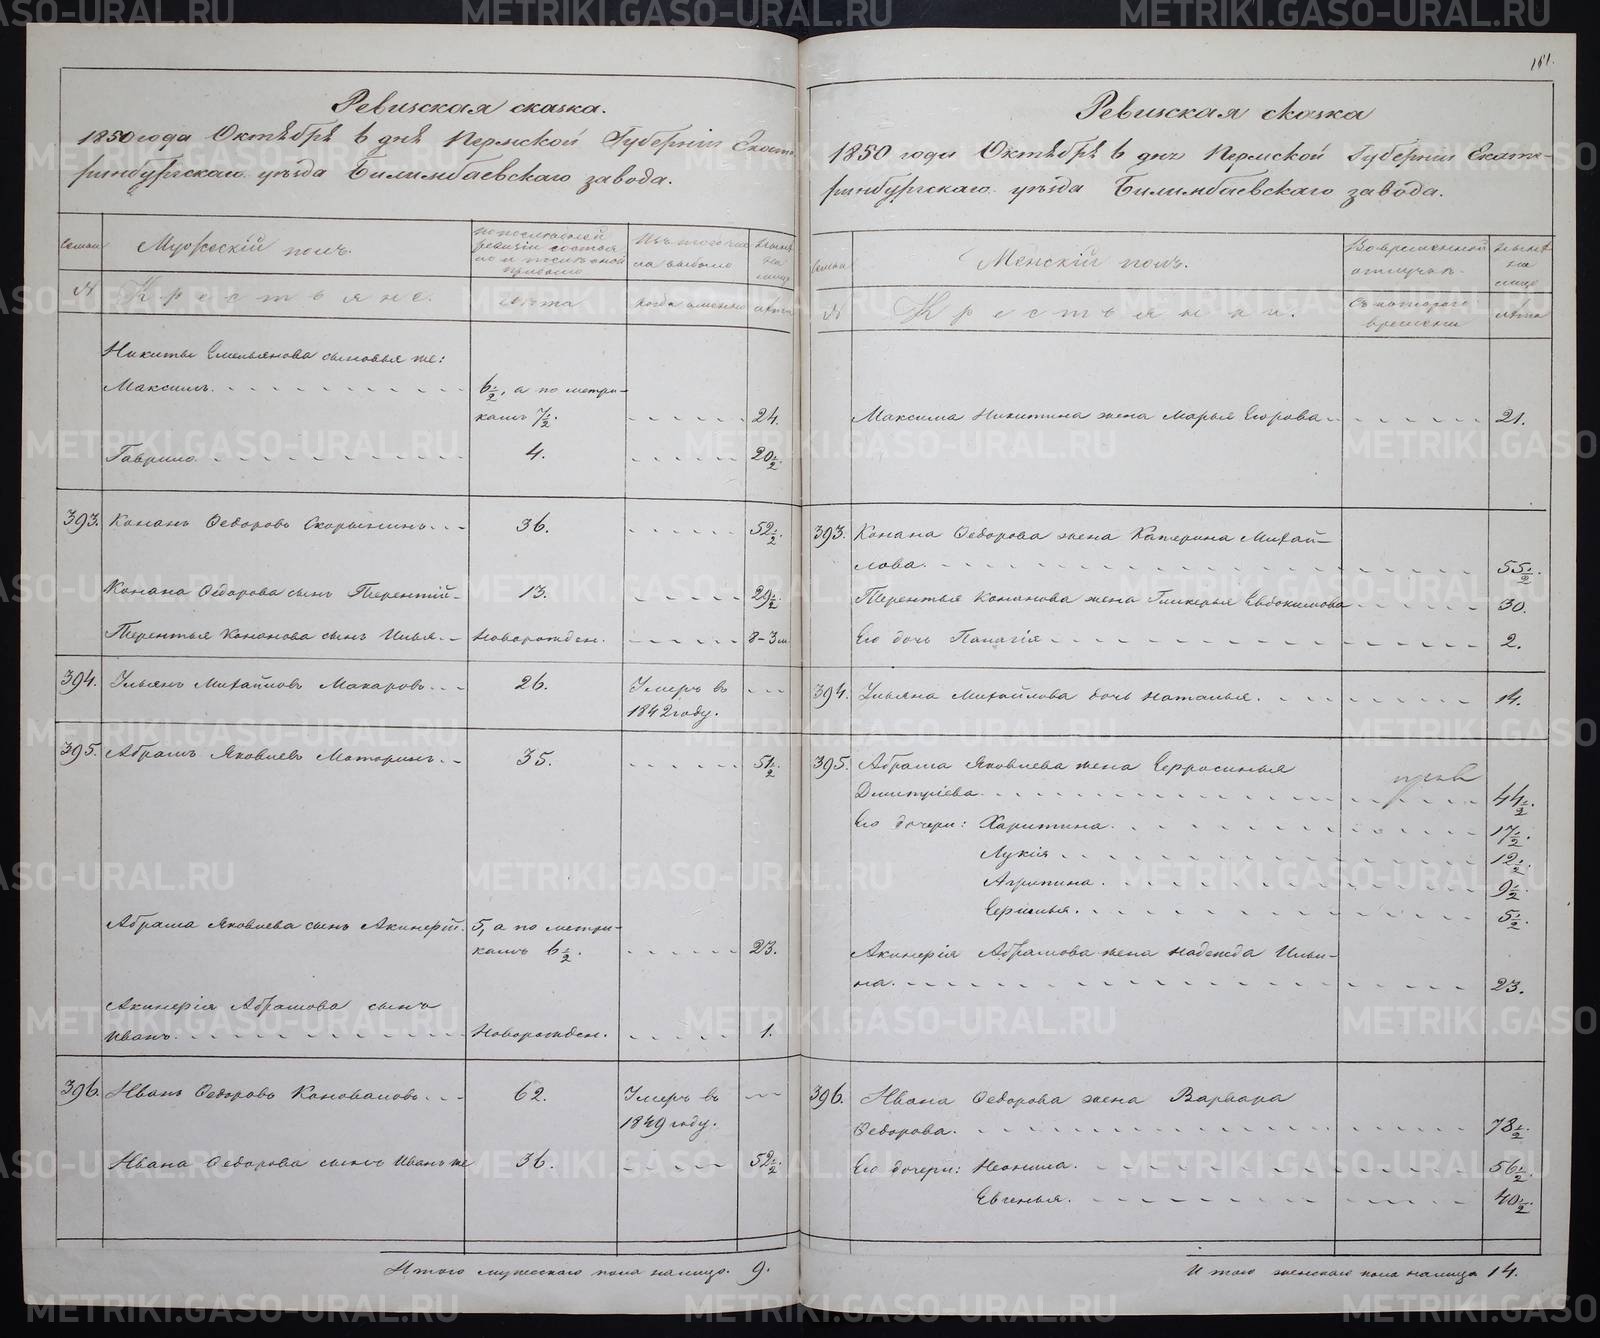 181.
Ревизская сказка.
1850 года Октября 6 дня Пермской Губернiи Екате-
ринбургскаго уѣзда Билимбаевскаго завода.
Семьи
Мужескiй полъ.
По послѣдней ревизiи состояло и послѣ оной прибыло
Изъ того числа выбыло
Нынѣ на лицо
№
Крестьяне.
Лѣта
Когда именно
Лѣта
Никиты Емельянова сыновья же:
Максимъ. 6½, а по метри-
камъ 7½. 24.
Гаврило 4. 20½.
393. Конанъ Ѳедоровъ Скорынинъ 36. 52½.
Конана Ѳедорова сынъ Терентiй 13. 29½.
Терентья Конанова сынъ Илья Новорожден. 8-3м
394. Ульянъ Михайловъ Макаровъ 26. Умеръ въ
1842 году.
395. Абрамъ Яковлевъ Маторинъ 35. 51½.
Абрама Яковлева сынъ Акинфiй 5, а по метри-
камъ 6½. 23.
Акинфiя Абрамова сынъ
Иванъ. Новорожден. 1.
396. Иванъ Ѳедоровъ Коноваловъ 62. Умеръ въ
1849 году.
Ивана Ѳедорова сынъ Иванъ же 36. 52½.
Итого мужескаго пола налицо. 9.
Ревизская сказка
1850 года Октября 6 дня Пермской Губернiи Екате-
ринбургскаго уѣзда Билимбаевскаго завода.
Семьи
Женскiй полъ.
Во временной отлучкѣ
Нынѣ на лицо
№
Крестьянки.
Съ котораго времени
Лѣта
Максима Никитина жена Марья Егорова 21.
393. Конана Ѳедорова жена Катерина Михай-
лова. 55½.
Терентья Конанова жена Гликерья Евдокимова 30.
Его дочь Панагiя 2.
394. Ульяна Михайлова дочь Наталья. 14.
395. Абрама Яковлева жена Ефросинья
Дмитрiева 44½.
Его дочери: Харитина. 17½.
Лукiя 12½.
Агрипина. 9½.
Ермилья. 5½.
Акинфiя Абрамова жена Надежда Ильи-
на. 23.
396. Ивана Ѳедорова жена Варвара
Ѳедорова. 78½.
Его дочери: Неонила. 56½.
Евгенья. 40½.
Итого женскаго пола налицо 14.
METRIKI.GASO-URAL.RU